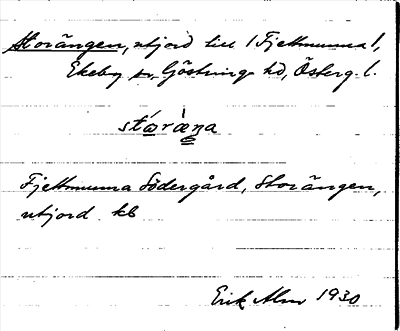 Storängen, utjord till 1 Fjettmunna 1,
Ekeby sn, Göstrings hd, Österg. l.
stáràŋa
Fjettmunna Södergård, Storängen,
utjord kb
Erik Alm 1930